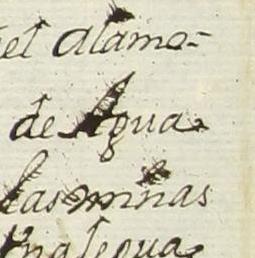 el alamo=
de Agua
las minas
una legua